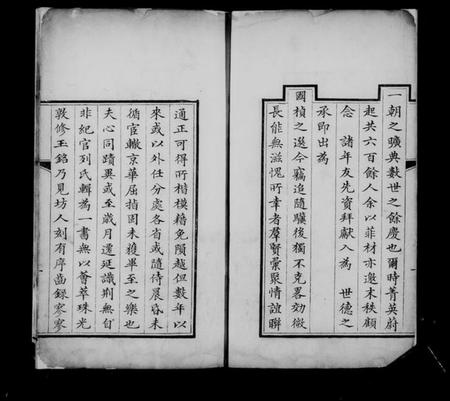 一朝之曠典數世之餘慶也爾時菁英蔚
起共六百餘人余以菲材亦邀末秩顧
念 諸年友先資拜獻入為 世德之
承即出為
國楨之選今竊追隨驥後獨不克畧効微
長能無滋愧所幸者羣賢彙聚情誼聯
通正可得所楷模藉免隕越但數年以
來或以外任分處各省或隨侍晨昏未
循宦轍京華屈指固未獲畢至之樂也
夫心同蹟異或至歲月遷延識荆無自
非紀官列氏輯為一書無以薈萃珠光
敦修玉銘乃見坊人刻有序齒錄寥寥